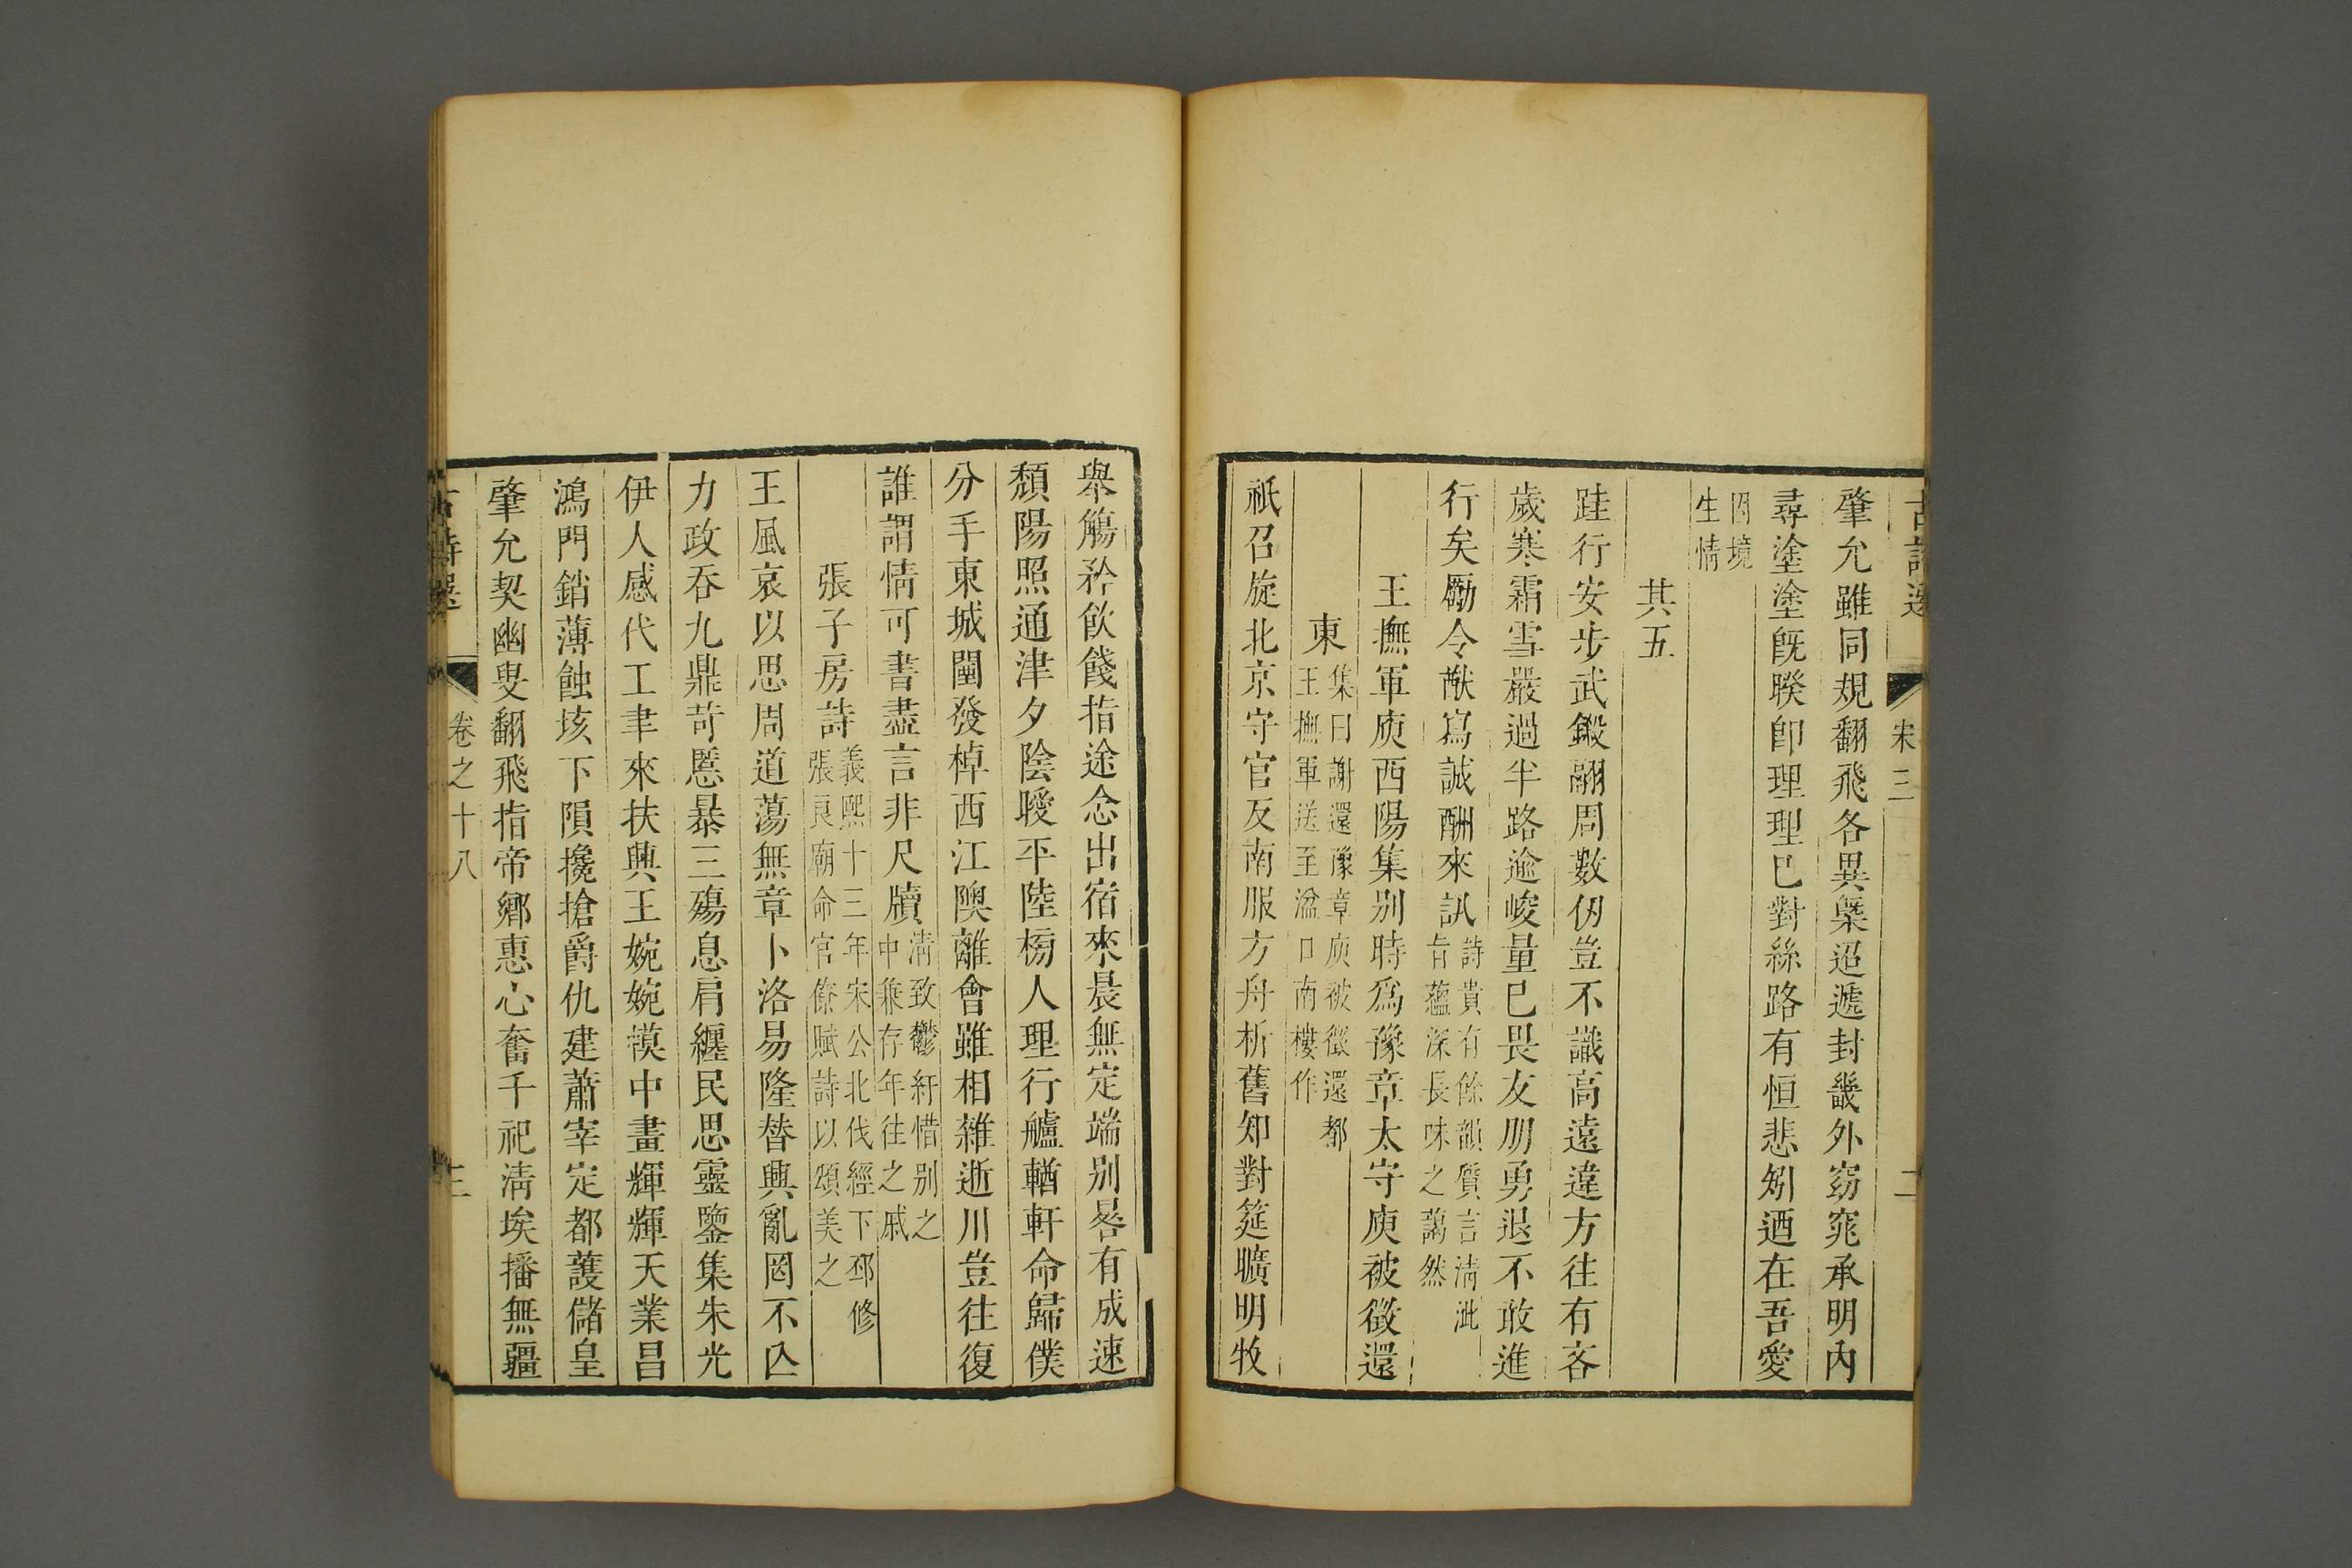 古詩選 宋三 二
肇允雖同規翻飛各異槩迢遞封畿外窈窕承明內
尋塗塗既暌卽理理已對絲路有恒悲矧迺在吾愛
因境
生情
其五
跬行安步武鎩翮周數仞豈不識高遠違方往有吝
歲寒霜雪嚴過半路逾峻量已畏友朋勇退不敢進
行矣勵令猷寫誠酬來訊
詩貴有餘韻質言淸泚
旨蘊深長味之藹然
王撫軍庾西陽集別時爲豫章太守庾被徵還
東
集曰謝還豫章庾被徵還都
王撫軍送至湓口南樓作
祇召旋北京守官反南服方舟析舊知對筵曠明牧
舉觴矜飲餞指途念出宿來晨無定端別晷有成速
頹陽照通津夕陰曖平陸榜人理行艫輶軒命歸僕
分手東城闉發棹西江隩離會雖相雜逝川豈往復
誰謂情可書盡言非尺牘
淸致鬱紆惜別之
中兼存年往之戚
張子房詩
義熙十三年宋公北伐經下邳修
張良廟命官僚賦詩以頌美之
王風哀以思周道蕩無章卜洛易隆替興亂罔不亾
力政吞九鼎苛慝暴三殤息肩纏民思靈鑒集朱光
伊人感代工聿來扶興王婉婉㡓中畫輝輝天業昌
鴻門銷薄蝕垓下隕攙搶爵仇建蕭宰定都護儲皇
肇允契幽叟翻飛指帝鄉惠心奮千祀淸埃播無疆
古詩選 卷之十八 三